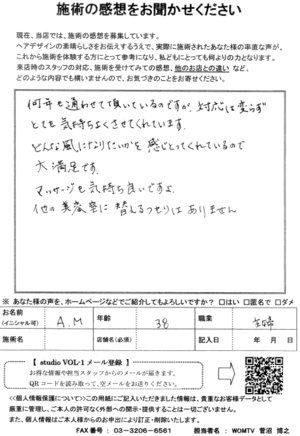 施術の感想をお聞かせください
現在、当店では、施術の感想を募集しています。
ヘアデザインの素晴らしさをお伝えするうえで、実際に施術されたあなた様の率直な声が、
これから施術を体験する方にとって参考になり、私どもにとっても何よりの力となります。
来店時のスタッフの対応、施術を受けてみての感想、他のお店との違い など、
どのような内容でも構いませんので、お気づきのことをお寄せください。
何年も通わせて頂いているのですが、対応は変らず
とても気持ちよくさせてくれています。
どんな風になりたいかを感じとってくれているので
大満足です。
マッサージも気持ち良いですよ。
他の美容室に替えるつもりはありません
※ あなた様の声を、ホームページなどでご紹介してもよろしいですか？ □はい □匿名で □ダメ
お名前 (イニシャル可) A.M 年齢 38 職業 主婦
施術名 店舗名(必須) 記入日 年 月 日
【 studio VOL-1 メール登録 】
お得な情報や担当スタッフからのメールが届きます。
QRコードを読み取って、空メールをお送りください。
<<個人情報保護について>>この用紙にご記入いただきました情報は、貴重なお客様データとして
厳重に管理し、ご本人の許可なく外部への開示・提供することは一切ございません。
また、個人情報はご本人様からのお申出により訂正・削除いたします。
FAX番号： 03－3206－6561 責任者： WOMTV 菅沼 博之